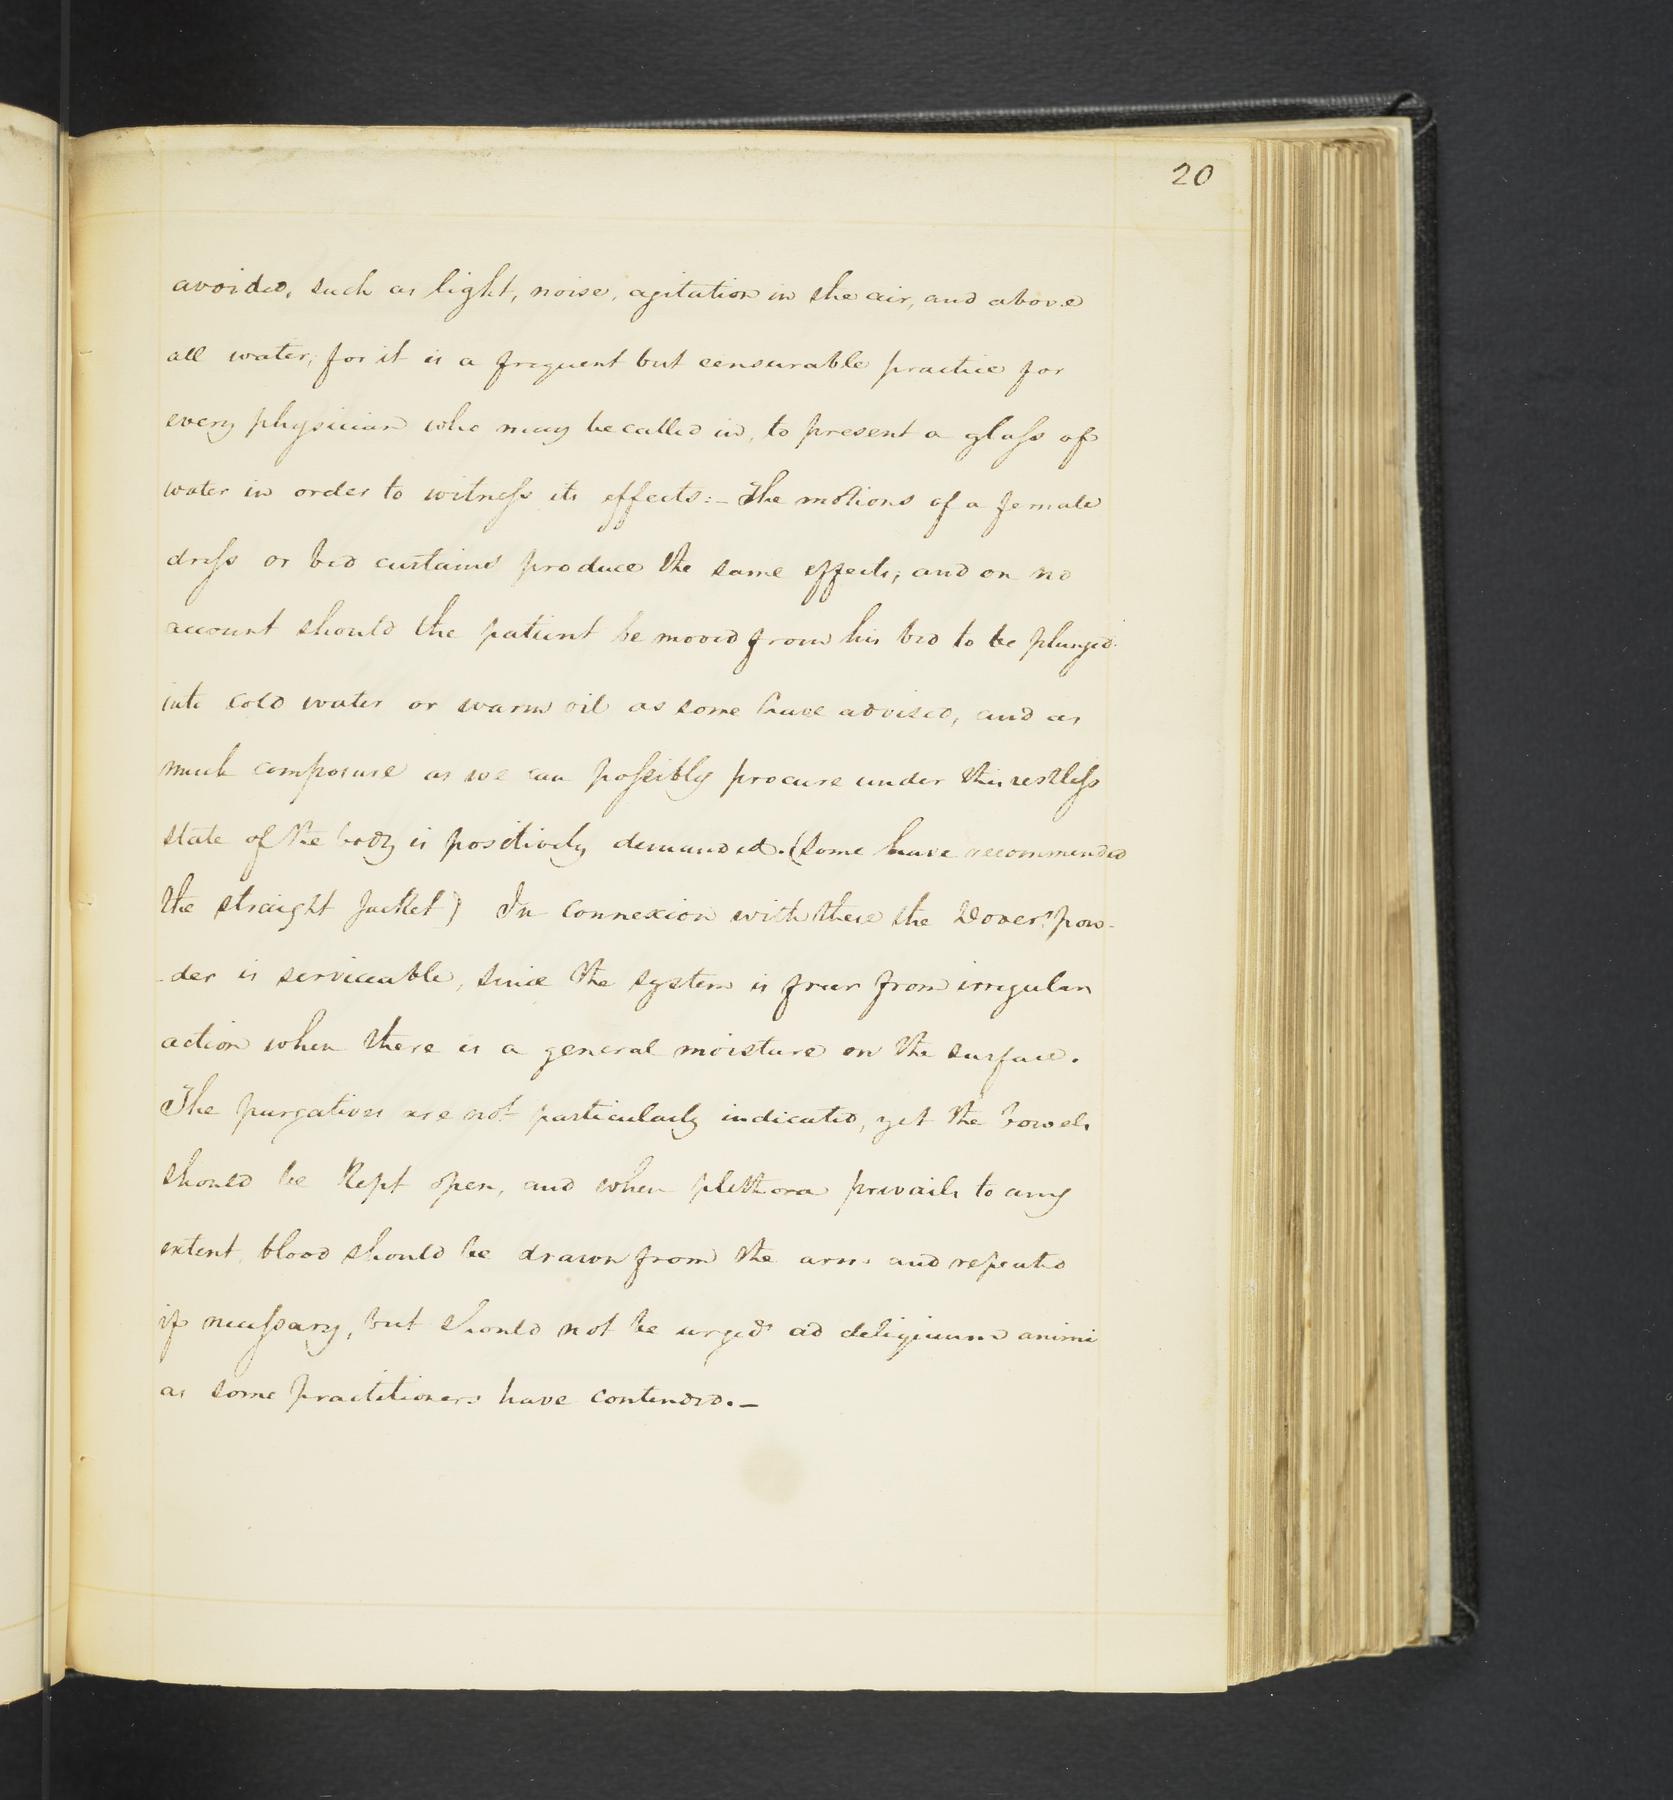 20
avoided, such as light, noise, agitation in the air, and above
all water; for it is a frequent but censurable practice for
every physician who may be called in, to present a glass of
water in order to witness its effects:– The motions of a female
dress or bed curtains produce the same effects; and on no
account should the patient be moved from his bed to be plunged
into cold water or warm oil as some have advised, and as
much composure as we can possibly procure under this restless
state of the body is positively demanded. (some have recommended
the straight Jacket) In connexion with these the Dover's pow-
-der is serviceable, since the system is freer from irregular
action when there is a general moisture on the surface.
The purgatives are not particularly indicated, yet the bowels
should be kept open, and when plethora prevails to any
extent, blood should be drawn from the arm and repeated
if necessary, but should not be urged ad deliquium animi
as some practitioners have contended.–